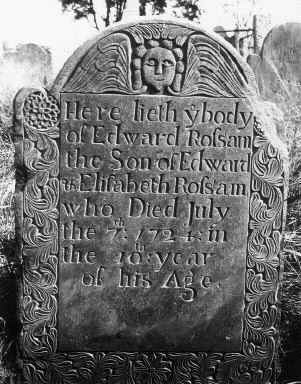 Here lieth yͤ body
of Edward Roſsam
the Son of Edward
& Eliſabeth Roſsam
who Died July
the 7ᵗʰ: 1724: in
the 10ᵗʰ: year
of his Age.